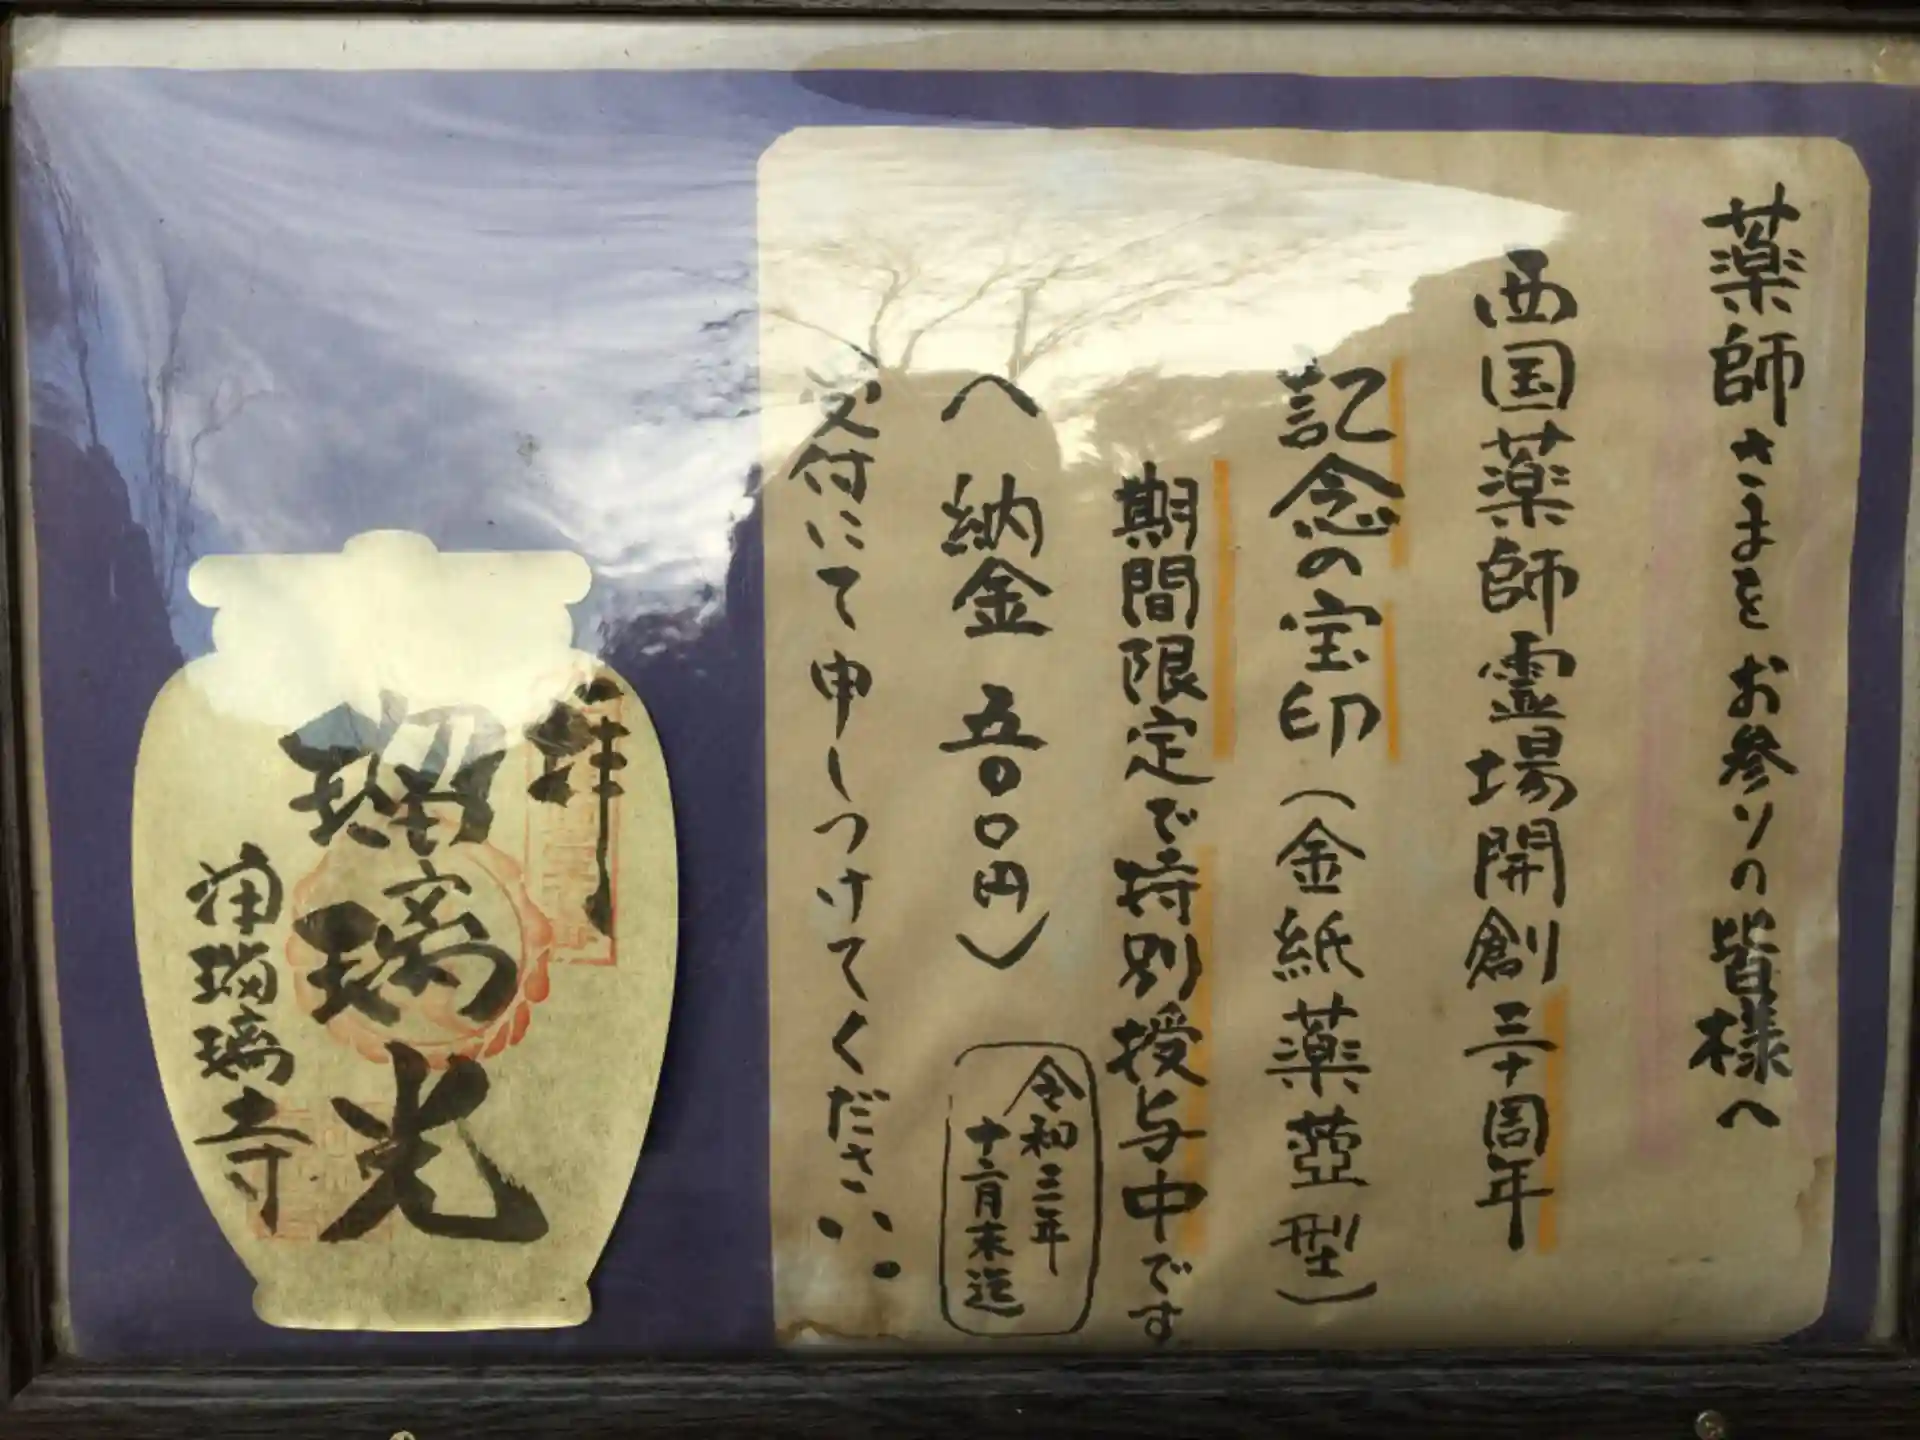 薬師さまをお参りの皆様へ
西国薬師霊場開創三十周年
記念の宝印(金紙薬壺型)
期間限定で特別授与中です
(納金 五〇〇円)
令和三年
十二月末迄
受付にて申しつけてください。
拝
瑠璃光
浄瑠璃寺